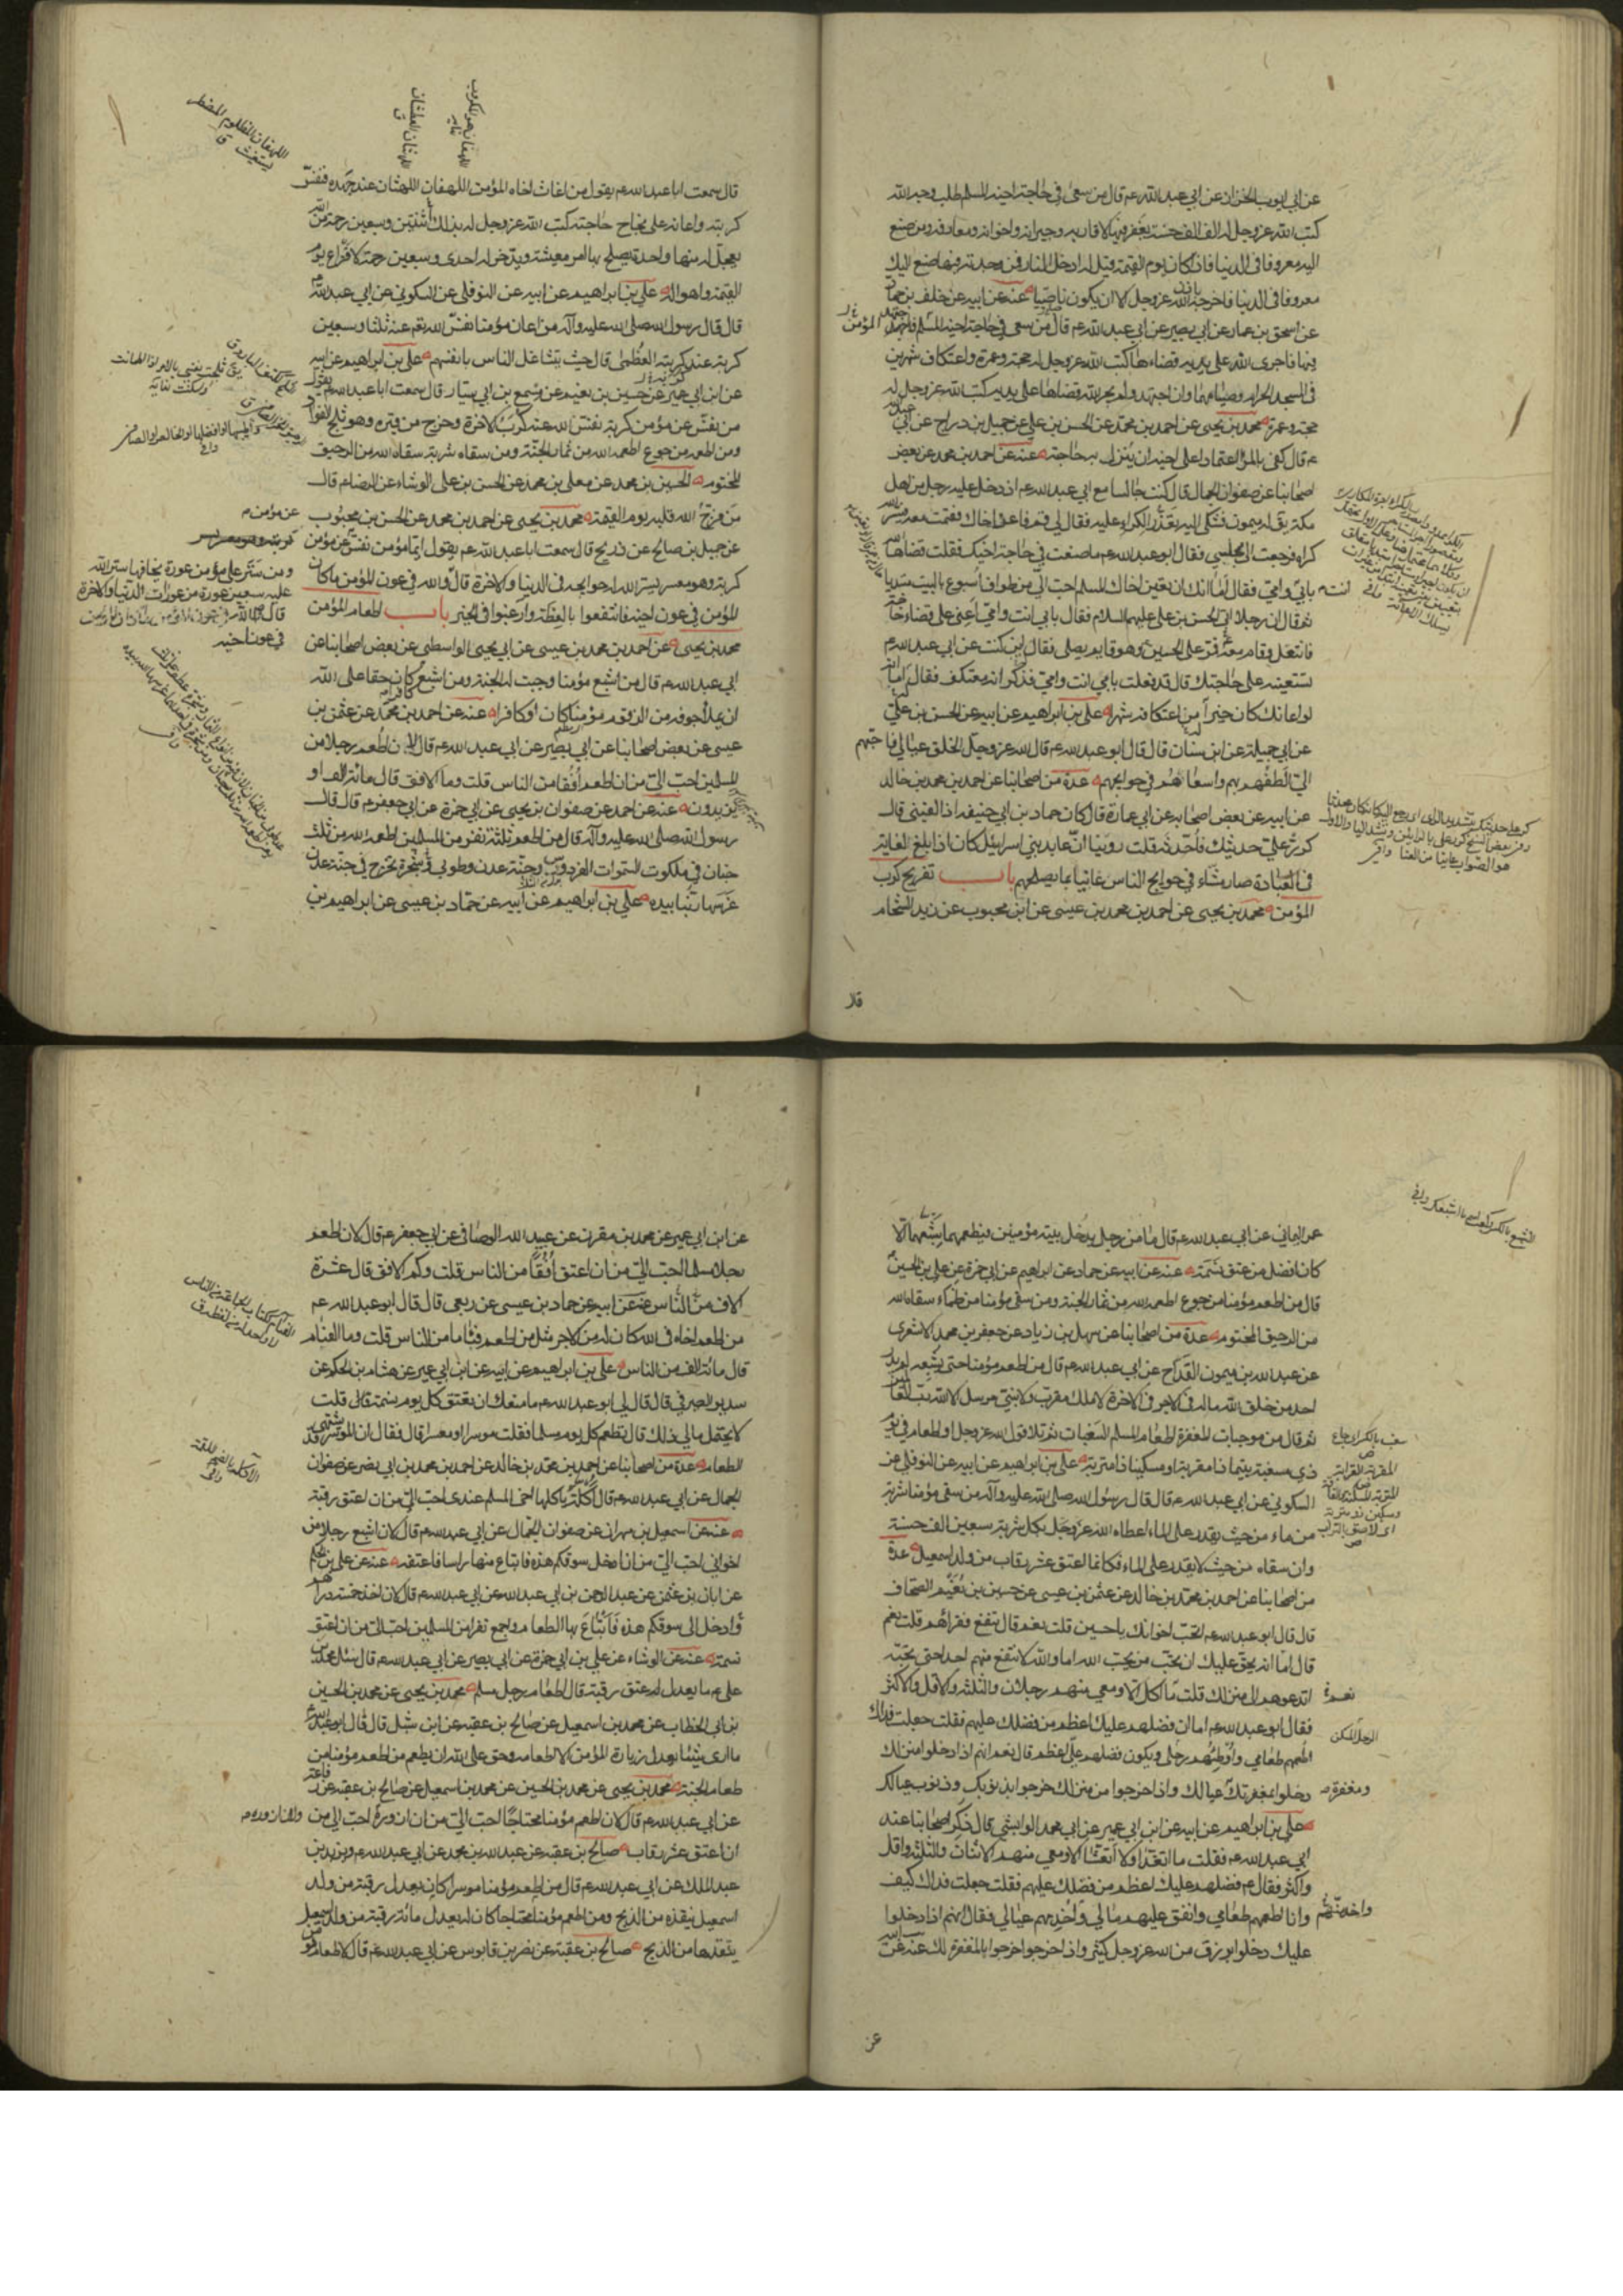 عن ابي ايوب الخزاز عن ابي عبد الله ع قال من سعى في حاجة اخيه المسلم طلب وجه الله
كتب الله عز وجل له الف الف حسنة يغفر فيها لاقاربه وجيرانه واخوانه ومعارفه ومن صنع
اليه معروفا في الدنيا فاذا كان يوم القيمة قيل له ادخل النار فمن وجدته فيها صنع اليك
معروفا في الدنيا فاخرجه باذن الله عز وجل الا ان يكون ناصبيا عنه عن ابيه عن خلف بن حماد
عن اسحق بن عمار عن ابي بصير عن ابي عبد الله ع قال من سعى في حاجة اخيه المسلم فاجتهد
فيها فاجرى الله على يديه قضاءها كتب الله عز وجل له حجة وعمرة واعتكاف شهرين
في المسجد الحرام وصيامهما وان اجتهد ولم يجر الله قضاها على يديه كتب الله عز وجل له
حجة وعمرة محمد بن يحيى عن احمد بن محمد عن الحسن بن علي عن جميل بن دراج عن ابي عبد الله
ع قال كفى بالمرء اعتمادا على اخيه ان ينزل به حاجته عنه عن احمد بن محمد عن بعض
اصحابنا عن صفوان الجمال قال كنت جالسا مع ابي عبد الله ع اذ دخل عليه رجل من اهل
مكة يق له ميمون فشكى اليه تعذر الكراء عليه فقال لي قم فاعن اخاك فقمت معه فيسر الله
كراه فرجعت الى مجلسي فقال ابو عبد الله ع ما صنعت في حاجة اخيك فقلت قضاها الله
بابي وامي فقال اما انك ان تعين اخاك المسلم احب الي من طواف اسبوع بالبيت مبتديا
ثم قال ان رجلا اتى الحسن بن علي عليهما السلام فقال بابي انت وامي اعني على قضاء حاجة
فانتعل وقام معه فمر على الحسين ع وهو قايم يصلى فقال اين كنت عن ابي عبد الله ع
تستعينه على حاجتك قال قد فعلت بابي انت وامي فذكر انه معتكف فقال اما انه
لو اعانك كان خيرا له من اعتكافه شهرا علي بن ابراهيم عن ابيه عن الحسن بن علي
عن ابي جميلة عن ابن سنان قال قال ابو عبد الله ع قال الله عز وجل الخلق عيالي فاحبهم
الي الطفهم بهم واسعاهم في حوايجهم عدة من اصحابنا عن احمد بن محمد بن خالد
عن ابيه عن بعض اصحابه عن ابي عمارة قال كان حماد بن ابي حنيفة اذا لقيني قال
كرر علي حديثك فاحدثه قلت روينا ان عابد بني اسرائيل كان اذا بلغ الغاية
في العبادة صار مشاء في حوايج الناس عانيا بما يصلحهم باب تفريج كرب
المؤمن محمد بن يحيى عن احمد بن محمد بن عيسى عن ابن محبوب عن زيد الشحام
قال
قال سمعت ابا عبد الله ع يقول من اغاث اخاه المؤمن اللهفان اللهثان عند جهده فنفس
كربته واعانه على نجاح حاجته كتب الله عز وجل له بذلك ثنتين وسبعين رحمة من الله
يعجل له منها واحدة يصلح بها امر معيشته ويدخر له احدى وسبعين رحمة لافزاع يوم
القيمة واهواله علي بن ابراهيم عن ابيه عن النوفلي عن السكوني عن ابي عبد الله ع
قال قال رسول الله صلى الله عليه وآله من اعان مؤمنا نفس الله عنه ثلثا وسبعين
كربة عند كربه العظمى قال حيث يتشاغل الناس بانفسهم علي بن ابراهيم عن ابيه
عن ابن ابي عمير عن حسين بن نعيم عن مسمع بن ابي سيار قال سمعت ابا عبد الله ع يقول
من نفس عن مؤمن كربة نفس الله عنه كرب الاخرة وخرج من قبره وهو ثلج الفؤاد
ومن اطعمه من جوع اطعمه الله من ثمار الجنة ومن سقاه شربة سقاه الله من الرحيق
المختوم الحسين بن محمد عن معلى بن محمد عن الحسن بن علي الوشاء عن الرضا ع قال
من فرج الله قلبه يوم القيمة محمد بن يحيى عن احمد بن محمد عن الحسن بن محبوب
عن جميل بن صالح عن ذريح قال سمعت ابا عبد الله ع يقول ايما مؤمن نفس عن مؤمن
كربة وهو معسر يسر الله له حوايجه في الدنيا والاخرة قال والله في عون المؤمن ما كان
المؤمن في عون اخيه فانتفعوا بالعظة وارغبوا في الخير باب اطعام المؤمن
محمد بن يحيى عن احمد بن محمد بن عيسى عن ابي يحيى الواسطي عن بعض اصحابنا عن
ابي عبد الله ع قال من اشبع مؤمنا وجبت له الجنة ومن اشبع كافرا كان حقا على الله
ان يملأ جوفه من الزقوم مؤمنا كان او كافرا عنه عن احمد بن محمد عن عثمن بن
عيسى عن بعض اصحابنا عن ابي بصير عن ابي عبد الله ع قال لان اطعم رجلا من
المسلمين احب الي من ان اطعم افقا من الناس قلت وما الافق قال مائة الف او
يزيدون عنه عن احمد عن صفوان بن يحيى عن ابي حمزة عن ابي جعفر ع قال قال
رسول الله صلى الله عليه وآله قال من اطعم ثلثة نفر من المسلمين اطعمه الله من ثلث
جنان في ملكوت السموات الفردوس وجنة عدن وطوبى شجرة تخرج في جنة عدن
غرسها ربنا بيده علي بن ابراهيم عن ابيه عن حماد بن عيسى عن ابراهيم بن
عمر اليماني عن ابي عبد الله ع قال ما من رجل يدخل بيته مؤمنين فيطعمهما شبعهما الا
كان افضل من عتق نسمة عنه عن ابيه عن حماد عن ابراهيم عن ابي حمزة عن علي بن الحسين ع
قال من اطعم مؤمنا من جوع اطعمه الله من ثمار الجنة ومن سقى مؤمنا من ظماء سقاه الله
من الرحيق المختوم عدة من اصحابنا عن سهل بن زياد عن جعفر بن محمد الاشعرى
عن عبد الله بن ميمون القداح عن ابي عبد الله ع قال من اطعم مؤمنا حتى يشبعه لم يدر
احد من خلق الله ما له في الاجر في الاخرة لا ملك مقرب ولا نبي مرسل الا الله رب العالمين
ثم قال من موجبات المغفرة اطعام المسلم السغبان ثم تلا قول الله عز وجل او اطعام في يوم
ذي مسغبة يتيما ذا مقربة او مسكينا ذا متربة علي بن ابراهيم عن ابيه عن النوفلي عن
السكوني عن ابي عبد الله ع قال قال رسول الله صلى الله عليه وآله من سقى مؤمنا شربة
من ماء من حيث يقدر على الماء اعطاه الله عز وجل بكل شربة سبعين الف حسنة
وان سقاه من حيث لا يقدر على الماء فكانما اعتق عشر رقاب من ولد اسمعيل عدة
من اصحابنا عن احمد بن محمد بن خالد عن عثمن بن عيسى عن حسين بن نعيم الصحاف
قال قال ابو عبد الله ع اتحب اخوانك يا حسين قلت نعم قال تنفع فقراءهم قلت نعم
قال اما انه يحق عليك ان تحب من يحب الله اما والله لا تنفع منهم احدا حتى تحبه
اتدعوهم الى منزلك قلت ما اكل الا ومعي منهم رجلان والثلثة والاقل والاكثر
فقال ابو عبد الله ع اما ان فضلهم عليك اعظم من فضلك عليهم فقلت جعلت فداك
اطعمهم طعامي واوطئهم رحلي ويكون فضلهم علي اعظم قال نعم انهم اذا دخلوا منزلك
دخلوا بمغفرتك عيالك واذا خرجوا من منزلك خرجوا بذنوبك وذنوب عيالك
علي بن ابراهيم عن ابيه عن ابن ابي عمير عن ابي محمد الوابشي قال ذكر اصحابنا عند
ابي عبد الله ع فقلت ما اتغدا ولا اتعشا الا ومعي منهم الاثنان والثلثة واقل
واكثر فقال ع فضلهم عليك اعظم من فضلك عليهم فقلت جعلت فداك كيف
وانا اطعمهم طعامي وانفق عليهم مالي واخدمهم عيالي فقال انهم اذا دخلوا
عليك دخلوا برزق من الله عز وجل كثير واذا خرجوا خرجوا بالمغفرة لك عنه عن
عن
عن ابن ابي عمير عن محمد بن مقرن عن عبيد الله الوصافى عن ابي جعفر ع قال لان اطعم
رجلا مسلما احب الي من ان اعتق افقا من الناس قلت وكم الافق قال عشرة
الاف من الناس عنه عن ابيه عن حماد بن عيسى عن ربعي قال قال ابو عبد الله ع
من اطعم اخاه في الله كان له من الاجر مثل من اطعم فئاما من الناس قلت وما الفئام
قال مائة الف من الناس علي بن ابراهيم عن ابيه عن ابن ابي عمير عن هشام بن الحكم عن
سدير الصيرفي قال قال لي ابو عبد الله ع ما منعك ان تعتق كل يوم نسمة قال قلت
لا يحتمل مالي ذلك قال تطعم كل يوم مسلما فقلت موسرا او معسرا قال فقال ان الموسر قد يشتهى
الطعام عدة من اصحابنا عن احمد بن محمد بن خالد عن احمد بن محمد بن ابي نصر عن صفوان
الجمال عن ابي عبد الله ع قال اكلة ياكلها اخي المسلم عندي احب الي من ان اعتق رقبة
عنه عن اسمعيل بن مهران عن صفوان الجمال عن ابي عبد الله ع قال لان اشبع رجلا من
اخواني احب الي من ان ادخل سوقكم هذه فابتاع منها راسا فاعتقه عنه عن علي بن الحكم
عن ابان بن عثمن عن عبد الرحمن بن ابي عبد الله عن ابي عبد الله ع قال لان اخذ خمسة دراهم
وادخل الى سوقكم هذه فابتاع بها الطعام واجمع نفرا من المسلمين احب الي من ان اعتق
نسمة عنه عن الوشاء عن علي بن ابي حمزة عن ابي بصير عن ابي عبد الله ع قال سئل محمد بن
علي ع ما يعدل عتق رقبة قال اطعام رجل مسلم محمد بن يحيى عن محمد بن الحسين
بن ابي الخطاب عن محمد بن اسمعيل عن صالح بن عقبة عن ابن شبل قال قال ابو عبد الله ع
ما ارى شيئا يعدل زيارة المؤمن الا اطعامه وحق على الله ان يطعم من اطعم مؤمنا من
طعام الجنة محمد بن يحيى عن محمد بن الحسين عن محمد بن اسمعيل عن صالح بن عقبة عن رفاعة
عن ابي عبد الله ع قال لان اطعم مؤمنا محتاجا احب الي من ان ازوره احب الي من
ان اعتق عشر رقاب صالح بن عقبة عن عبد الله بن محمد عن ابي عبد الله ع ويزيد بن
عبد الملك عن ابي عبد الله ع قال من اطعم مؤمنا موسرا كان يعدل رقبة من ولد
اسمعيل ينقذه من الذبح ومن اطعم مؤمنا محتاجا كان له يعدل مائة رقبة من ولد اسمعيل
ينقذها من الذبح صالح بن عقبة عن نصر بن قابوس عن ابي عبد الله ع قال لاطعام مؤمن